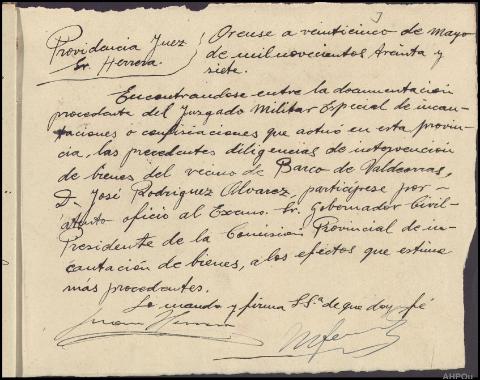 Providencia Juez
Sr. Herrera.
Orense a veinticinco de Mayo
de mil novecientos treinta y
siete.
Encontrandose entre la documentación
procedente del Juzgado Militar Especial de incau-
taciones o confiscaciones que actuó en esta provin-
cia, las precedentes diligencias de intervención
de bienes del vecino de Barco de Valdeorras,
D. José Rodriguez Alvarez, participese por
atento oficio al Excmo. Sr. Gobernador Civil-
Presidente de la Comisión Provincial de in-
cautación de bienes, a los efectos que estime
más procedentes.
Lo manda y firma S.Sª de que doy fé
AHPOu